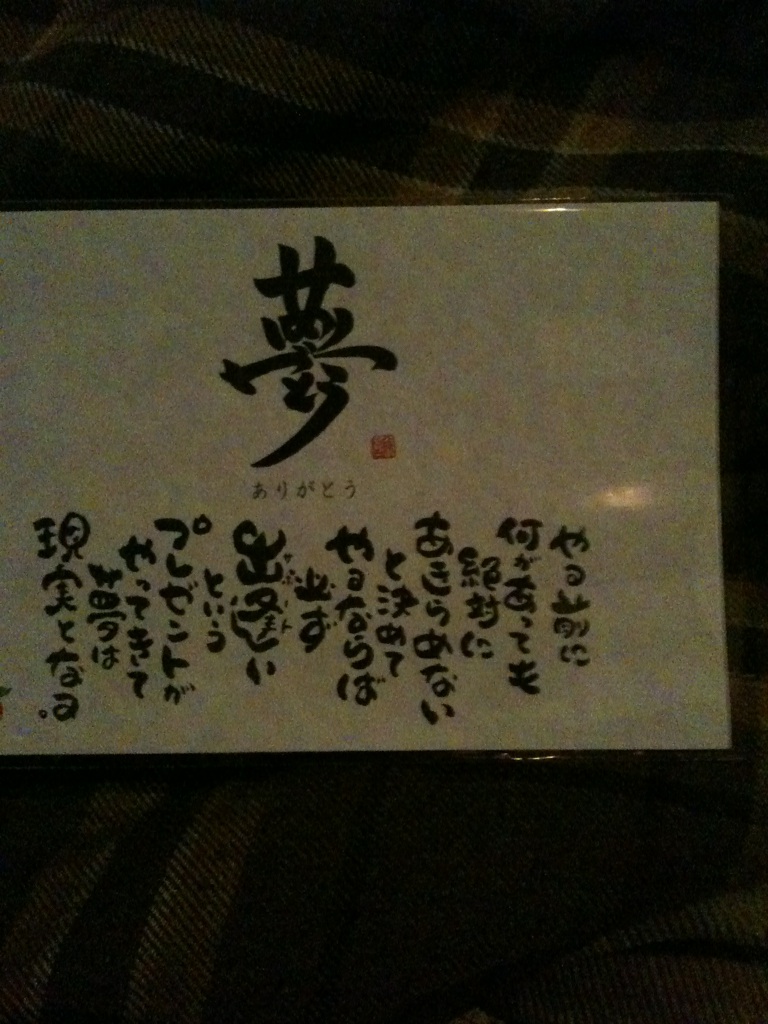 夢
ありがとう
やる前に
何があっても
絶対に
あきらめない
と決めて
やるならば
必ず
出逢い
という
プレゼントが
やってきて
夢は
現実となる。